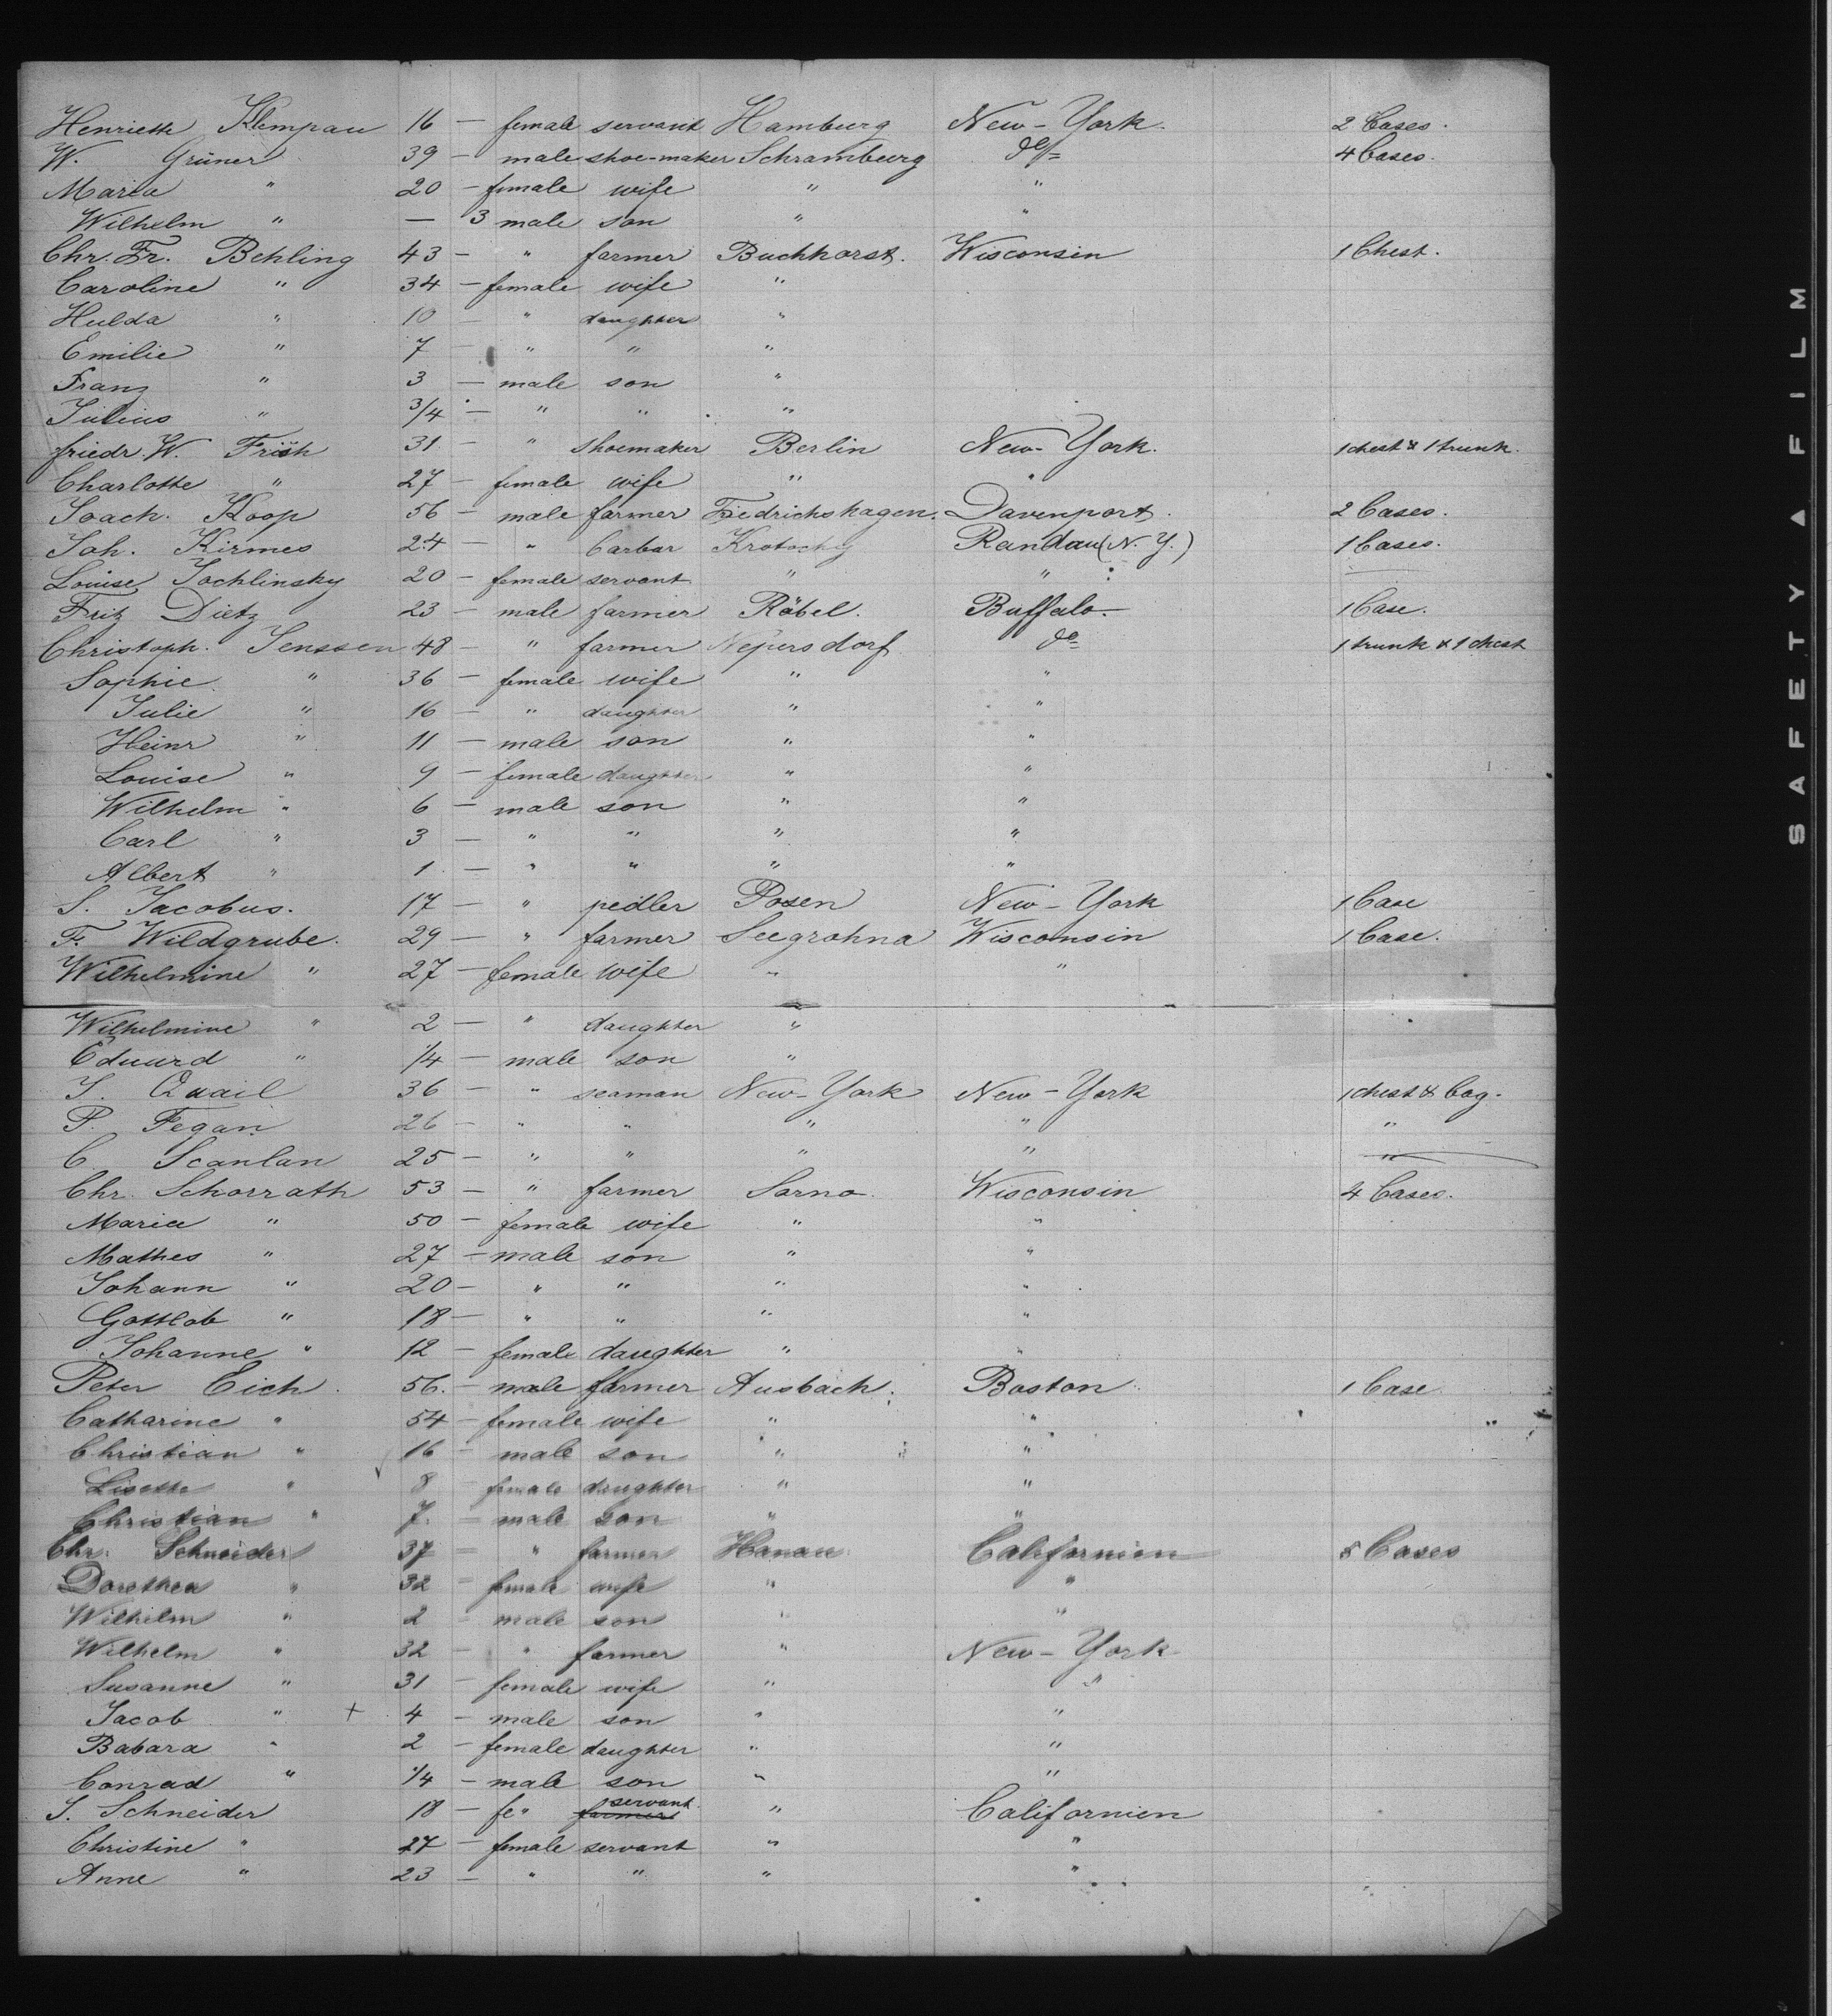 Henriette Klempau 16 — female servant Hamburg New-York. 2 Cases.
W. Grüner 39 — male shoe-maker Schramburg do 4 Cases.
Maria " 20 — female wife " "
Wilhelm " — 3 male son " "
Chr. Fr. Behling 43 — " farmer Buchhorst. Wisconsin 1 Chest.
Caroline " 34 — female wife "
Hulda " 10 — " daughter "
Emilie " 7 — " " "
Franz " 3 — male son "
Julius " 3/4 — " " "
friedr. W. 31 — " shoemaker Berlin New-York. 1 chest & 1 trunk.
Charlotte " 27 — female wife " "
Joach. Koop 56 — male farmer Friedrichshagen. Davenport. 2 Cases.
Joh. Kirmes 24 — " barbar Randau (N. Y.) 1 Cases.
Louise Jochlinsky 20 — female servant " "
Friz Dietz 23 — male farmer Röbel. Buffalo — 1 Case.
Christoph. Jenssen 48 — " farmer Nepersdorf do 1 trunk & 1 chest
Sophie " 36 — female wife " "
Julie " 16 — " daughter " "
Heinr " 11 — male son " "
Louise " 9 — female daughter " "
Wilhelm " 6 — male son " "
Carl " 3 — " " " "
Albert " 1 — " " " "
S. Jacobus. 17 — " pedler Posen New-York 1 Case
F. Wildgrube. 29 — " farmer Seegrohna Wisconsin 1 Case.
Wilhelmine " 27 — female wife " "
Wilhelmine " 2 — " daughter "
Eduard " 1/4 — male son "
J. Quail 36 — " seaman New-York New-York 1 chest & bag.
P. Fegan 26 — " " " " "
C. Scanlan 25 — " " " " "
Chr. Schorrath 53 — " farmer Sarno. Wisconsin 4 Cases.
Maria " 50 — female wife " "
Mathes " 27 — male son " "
Johann " 20 — " " " "
Gottlob " 18 — " " " "
Johanne " 12 — female daughter " "
Peter Eich. 56. — male farmer Ausbach. Boston 1 Case
Catharine " 54 — female wife " "
Christian " 16 — male son " "
Lisette " 8 — female daughter " "
Christian " 7. — male son " "
Chr. Schneider 37 — " farmer Hanau Californien 8 Cases
Dorethea " 32 — female wife " "
Wilhelm " 2 — male son " "
Wilhelm " 32 — " farmer " New-York
Susanne " 31 — female wife " "
Jacob " + 4 — male son " "
Babara " 2 — female daughter " "
Conrad " 1/4 — male son " "
J. Schneider 18 — fe " farmers servant " Californien
Christine " 27 — female servant " "
Anne " 23 — " " " "
SAFETY ▲ FILM